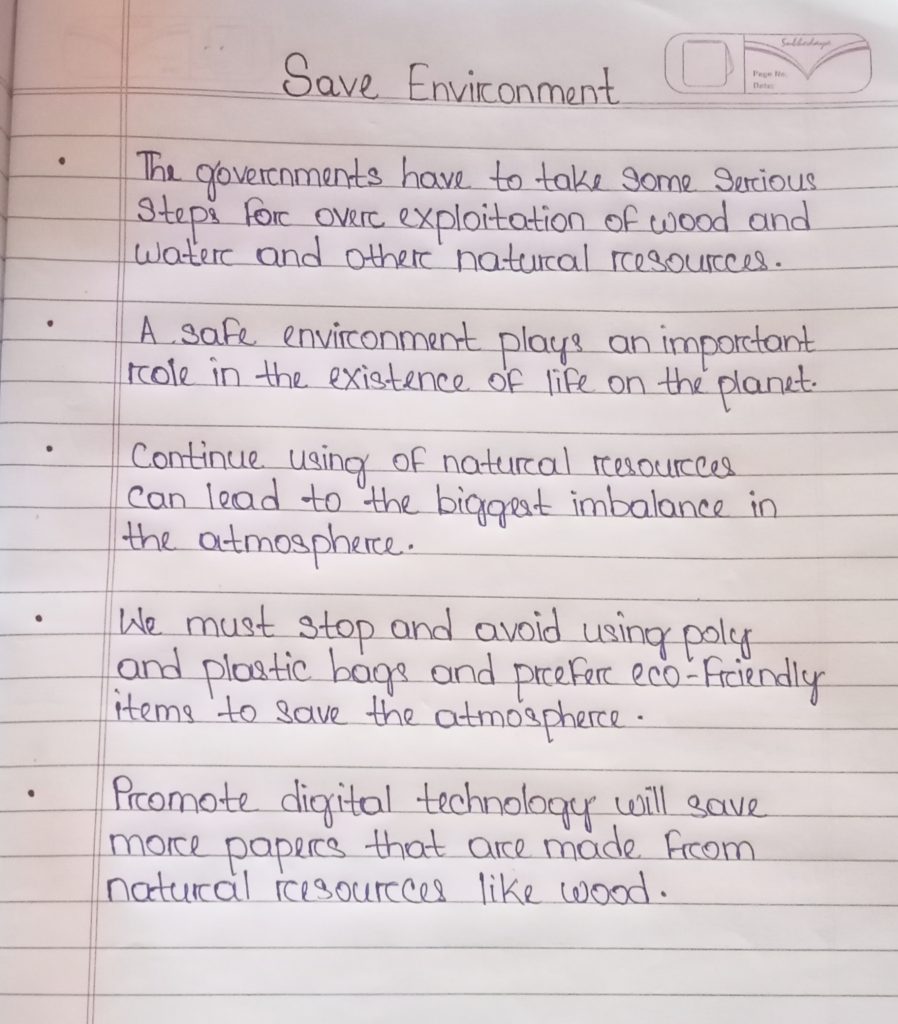 Sabbedaya
Page No.
Date:
Save Environment
• The governments have to take some serious
steps for over exploitation of wood and
water and other natural resources.
• A safe environment plays an important
role in the existence of life on the planet.
• Continue using of natural resources
can lead to the biggest imbalance in
the atmosphere.
• We must stop and avoid using poly
and plastic bags and prefer eco-friendly
items to save the atmosphere.
• Promote digital technology will save
more papers that are made from
natural resources like wood.